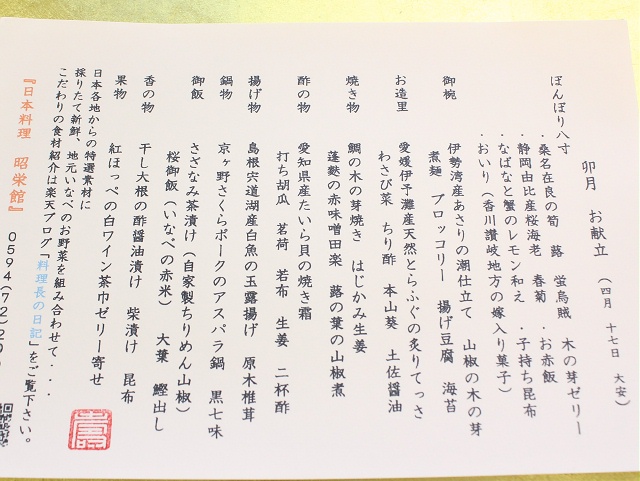 卯月 お献立 (四月 十七日 大安)
ぼんぼり八寸
・桑名在良の筍 蕗 蛍烏賊 木の芽ゼリー
・静岡由比産桜海老 春菊 ・お赤飯
・なばなと蟹のレモン和え ・子持ち昆布
・おいり(香川讃岐地方の嫁入り菓子)
御椀 伊勢湾産あさりの潮仕立て 山椒の木の芽
煮麺 ブロッコリー 揚げ豆腐 海苔
お造里 愛媛伊予灘産天然とらふぐの炙りてっさ
わさび菜 ちり酢 本山葵 土佐醤油
焼き物 鯛の木の芽焼き はじかみ生姜
蓮麩の赤味噌田楽 蕗の葉の山椒煮
酢の物 愛知県産たいら貝の焼き霜
打ち胡瓜 茗荷 若布 生姜 二杯酢
揚げ物 島根宍道湖産白魚の玉露揚げ 原木椎茸
鍋物 京ヶ野さくらポークのアスパラ鍋 黒七味
御飯 さざなみ茶漬け(自家製ちりめん山椒)
桜御飯(いなべの赤米) 大葉 鰹出し
香の物 干し大根の酢醤油漬け 柴漬け 昆布
果物 紅ほっぺの白ワイン茶巾ゼリー寄せ
日本各地からの特選素材に
採りたて新鮮、地元いなべのお野菜を組み合わせて・・・
こだわりの食材紹介は楽天ブログ「料理長の日記」をご覧下さい。
『日本料理 昭栄館』 0594(72)20